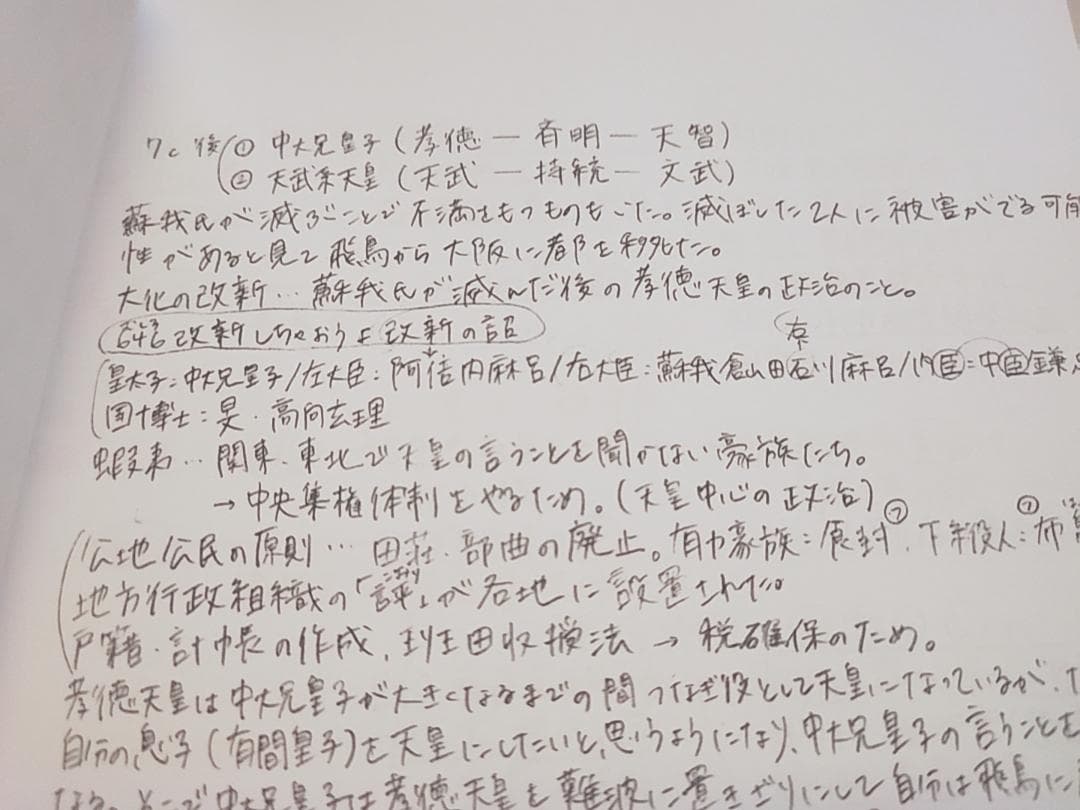 7c 後 ① 中大兄皇子 (孝徳 ― 斉明 ― 天智)
② 天武系天皇 (天武 ― 持統 ― 文武)
蘇我氏が滅ぶことで不満をもつものもいた。滅ぼした2人に被害がでる可能
性があると見て飛鳥から大阪に都を移した。
大化の改新…蘇我氏が滅んだ後の孝徳天皇の政治のこと。
646改新しちゃおうよ改新の詔
右
皇太子:中大兄皇子/左大臣:阿倍内麻呂/右大臣:蘇我倉山田石川麻呂/内臣:中臣鎌足
国博士:旻・高向玄理
蝦夷…関東、東北で天皇の言うことを聞かない豪族たち。
→中央集権体制をやるため。(天皇中心の政治)
公地公民の原則…田荘・部曲の廃止。有力豪族:食封⑦、下級役人:布
地方行政組織の「評」が各地に設置された。
戸籍・計帳の作成、班田収授法 → 税確保のため。
孝徳天皇は中大兄皇子が大きくなるまでの間つなぎ役として天皇になっているが、
自分の息子(有間皇子)を天皇にしたいと思うようになり、中大兄皇子の言うことを
なる。そこで中大兄皇子は孝徳天皇を難波に置きざりにして自分は飛鳥に